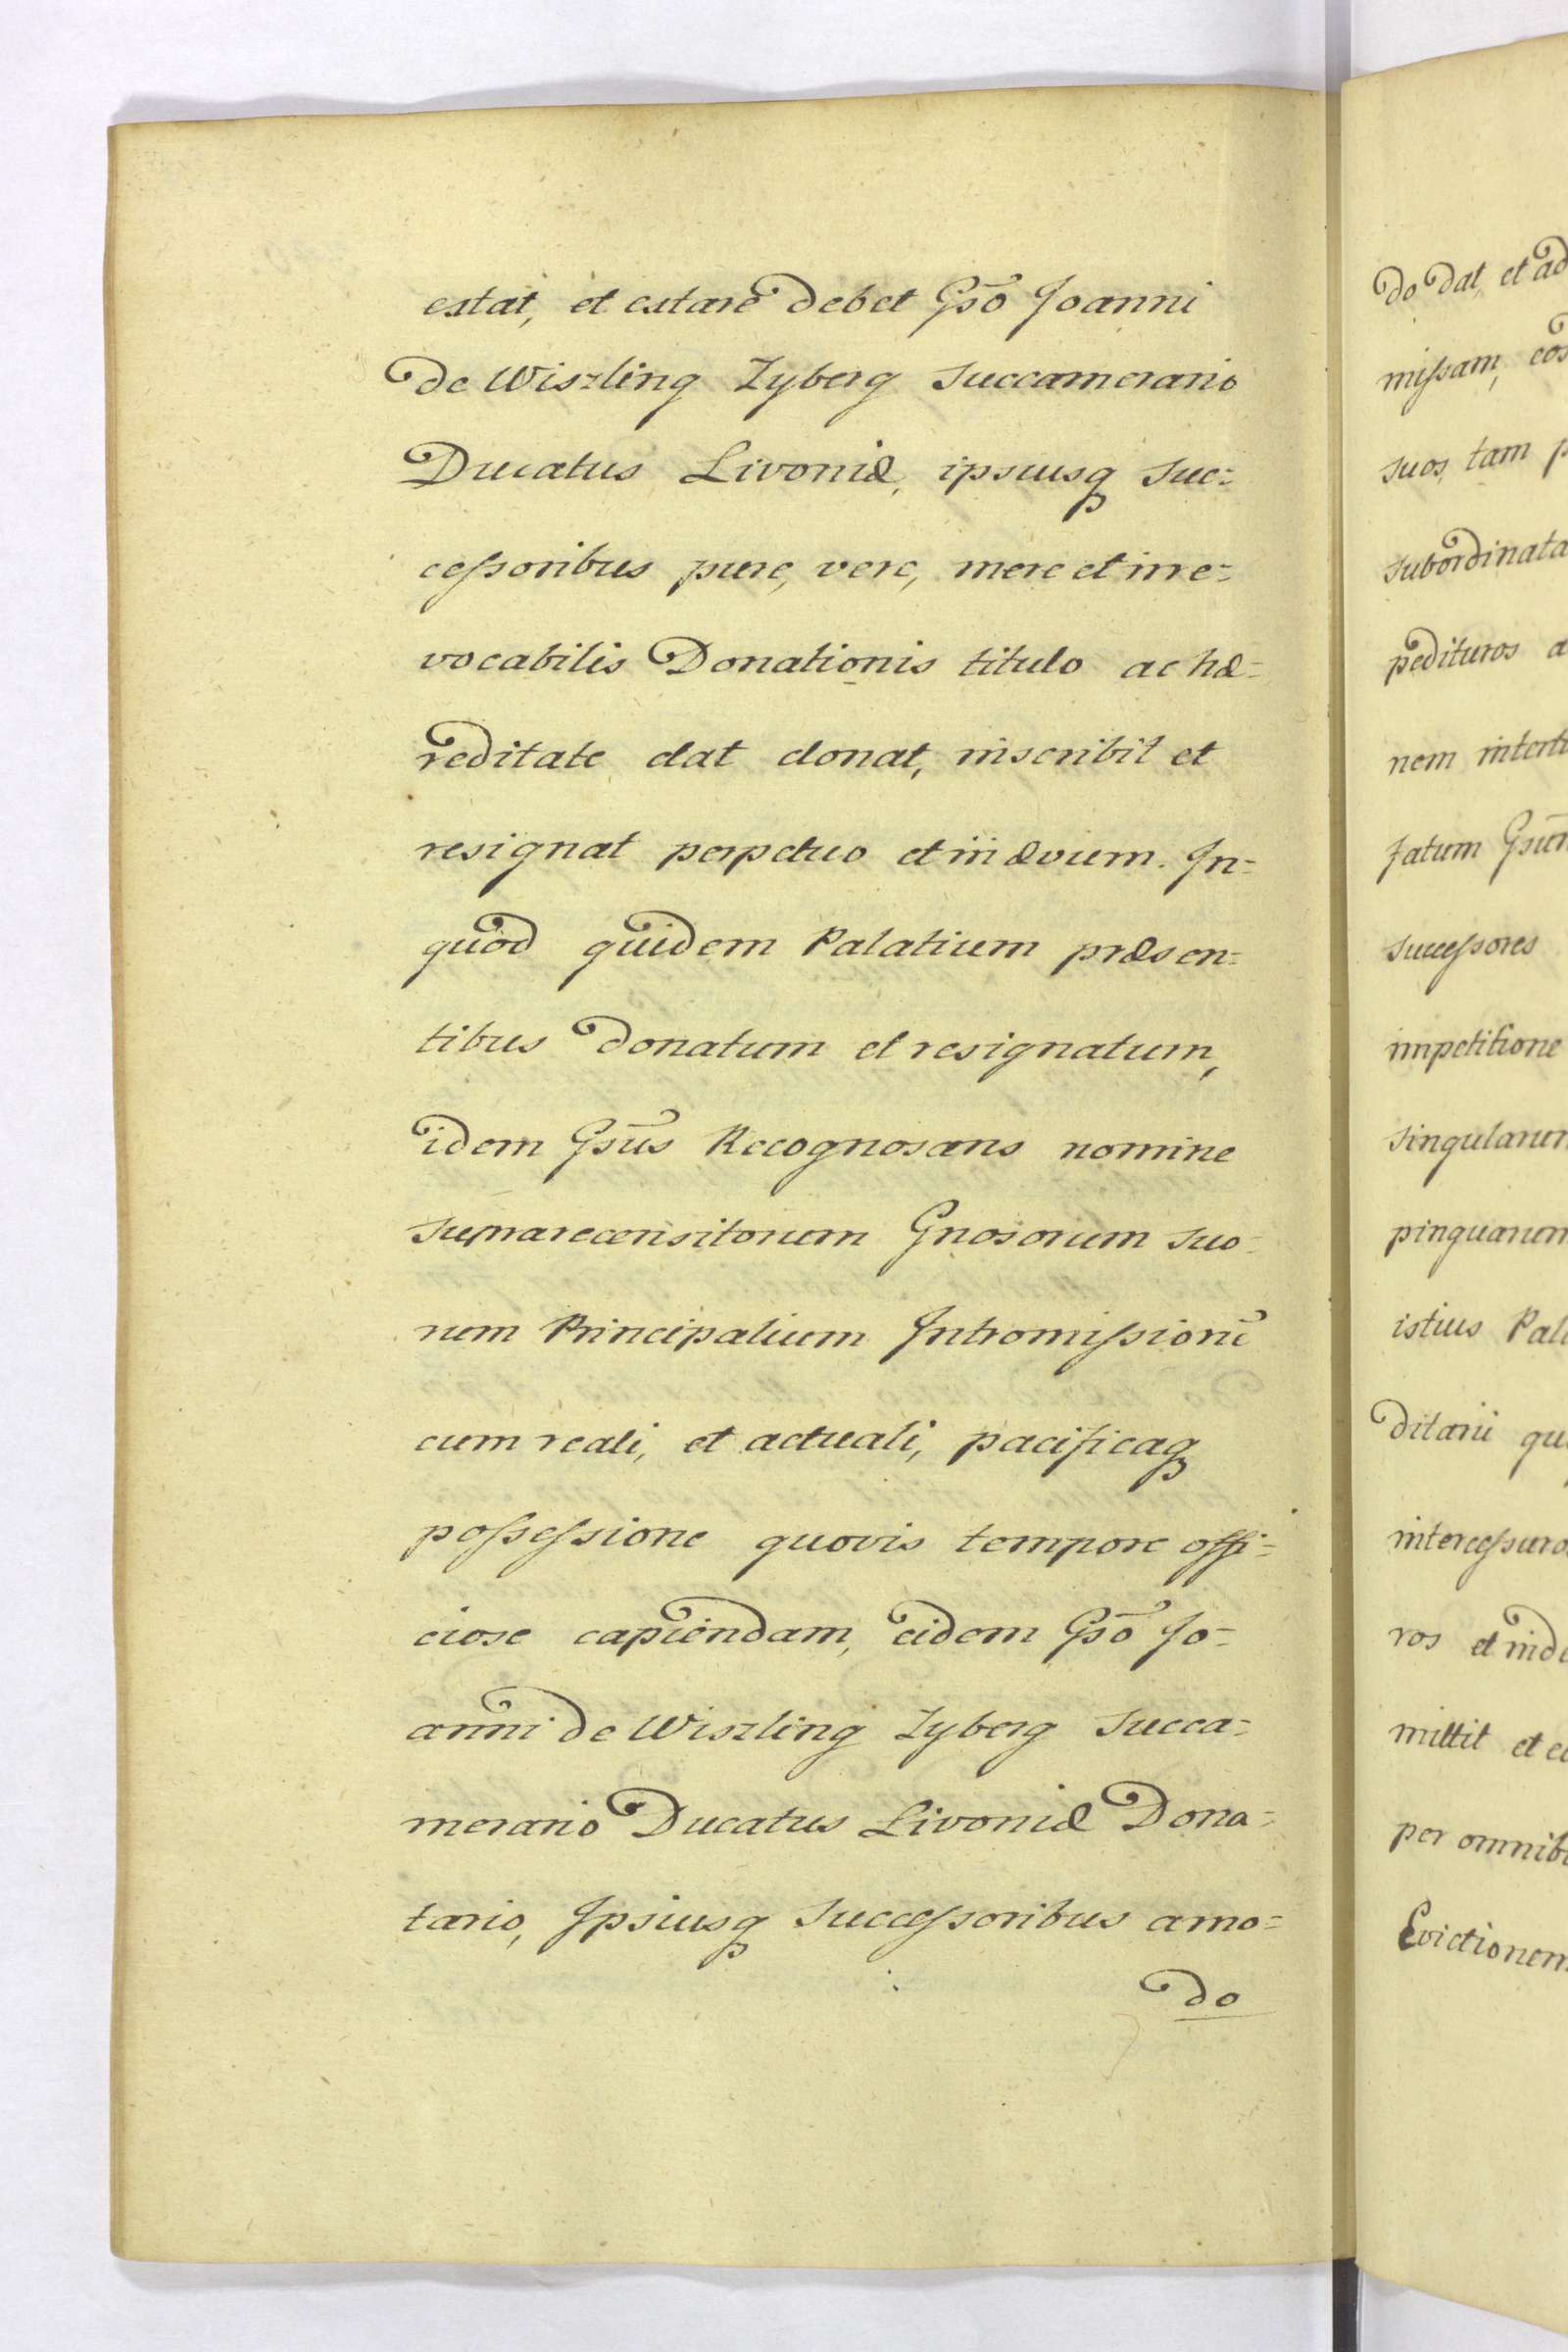 extat, et extare debet Gsō Joanni
de Wiszling Zyberg Succamerario
Ducatus Livoniæ, ipsiusq Suc=
cessoribus pure, vere, mere et irre=
vocabilis Donationis titulo ac hæ=
reditate dat donat, inscribit et
resignat perpetuo et in ævum. In=
quod quidem Palatium præsen=
tibus donatum et resignatum,
idem Gsūs Recognoscens nomine
suprarecensitorum Gnosorum suo=
rum Principalium Intromissionē
cum reali, et actuali, pacificaq
possessione quovis tempore offi=
ciose capiendam, eidem Gsō Jo=
anni de Wiszling Zyberg Succa=
merario Ducatus Livoniæ Dona=
tario, Ipsiusq Successoribus amo=
do
do dat, et ad
missam, eos
suos, tam p
subordinata
pedituros a
nem interte
fatum Gsūm
Successores
impetitione
Singularum
pinquarum
istius Pala
ditarii qu
intercessuro
ros et inde
mittit et e
per omnib
Evictionem